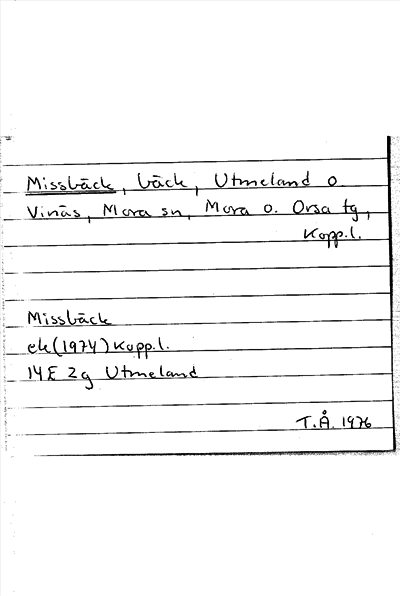 Missbäck, bäck, Utmeland o.
Vinäs, Mora sn, Mora o. Orsa tg,
Kopp.l.
Missbäck
ek(1974) Kopp.l.
14E 2g Utmeland
T.Å. 1976